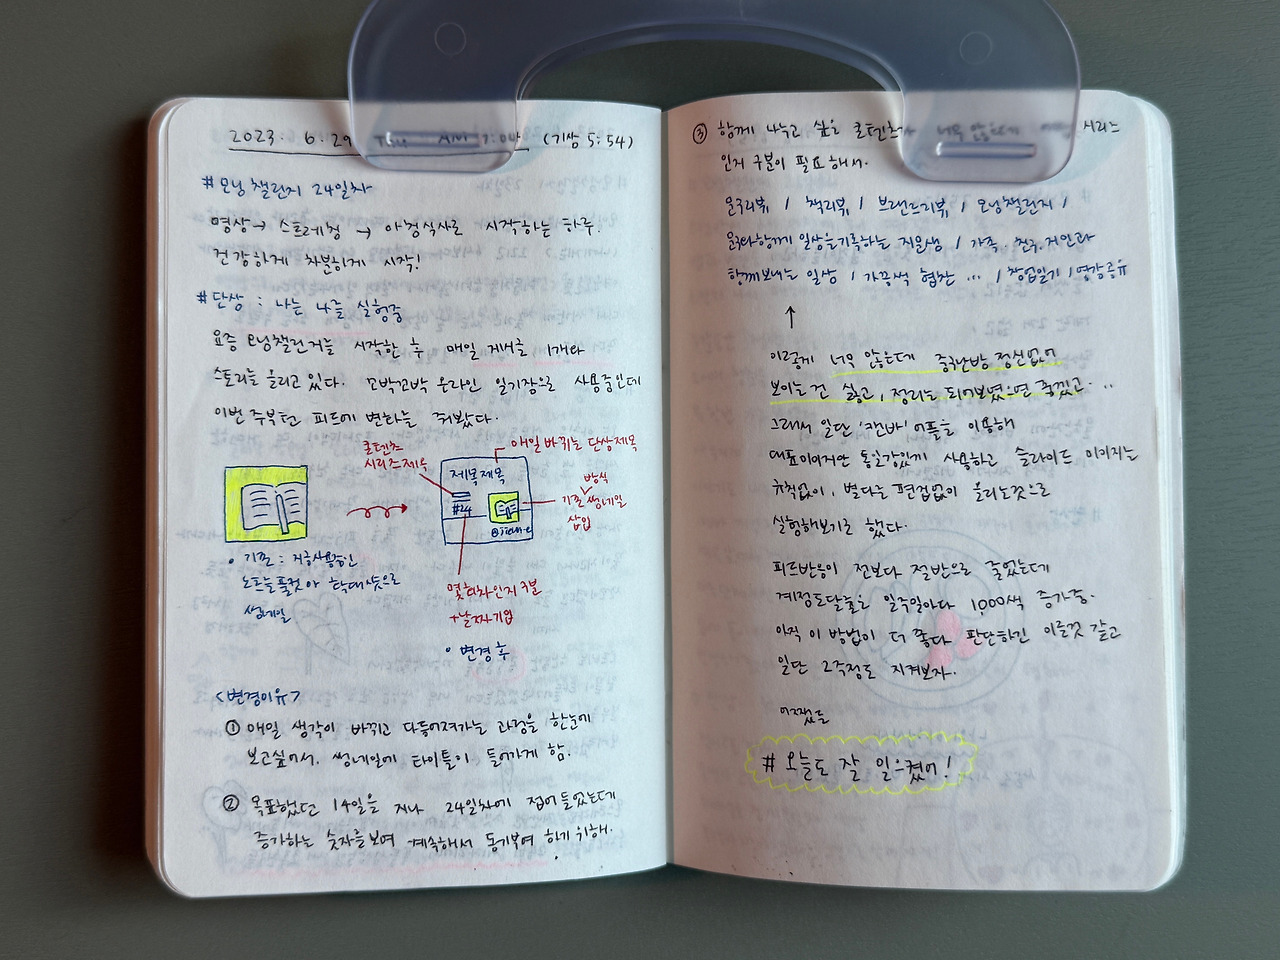 2023. 6. 29 Thu AM 7:00 (기상 5:54)
#모닝챌린지 24일차
명상→ 스트레칭 → 아침식사로 시작하는 하루.
건강하게 차분하게 시작!
#단상 : 나는 나를 실험중
요즘 모닝챌린지를 시작한 후 매일 게시글 1개와
스토리를 올리고 있다. 꼬박꼬박 온라인 일기장으로 사용중인데
이번주부턴 피드에 변화를 줘봤다.
콘텐츠
시리즈제목
매일 바뀌는 단상제목
제목제목
#24
방식
기존 썸네일
삽입
몇회차인지 구분
+날짜기입
• 기존 : 지금사용중인
노트를 풀컷 or 확대샷으로
썸네일
• 변경 후
<변경이유>
① 매일 생각이 바뀌고 다듬어져가는 과정을 한눈에
보고싶어서, 썸네일에 타이틀이 들어가게 함.
② 목표했던 14일을 지나 24일차에 접어들었는데
증가하는 숫자를 보며 계속해서 동기부여 하기 위해.
③ 함께 나누고 싶은 콘텐츠가 너무 많은데 시리즈
인지 구분이 필요해서.
문구리뷰 / 책리뷰 / 브랜드리뷰 / 모닝챌린지 /
문구와함께 일상을기록하는 지은쌤 / 가족. 친구. 지인과
함께보내는 일상 / 가끔씩 협찬 ... / 창업일기 / 영감공유
↑
이렇게 너무 많은데 중구난방 정신없어
보이는 건 싫고, 정리는 되어보였으면 좋겠고...
그래서 일단 '캔바' 어플을 이용해
대표이미지만 통일감있게 사용하고 슬라이드 이미지는
규칙없이, 별다른 편집없이 올리는것으로
실험해보기로 했다.
피드반응이 전보다 절반으로 줄었는데
계정도달율은 일주일마다 1,000씩 증가중.
아직 이 방법이 더 좋다 판단하긴 이를것 같고
일단 2주정도 지켜보자.
어쨌든
# 오늘도 잘 일으켰어!